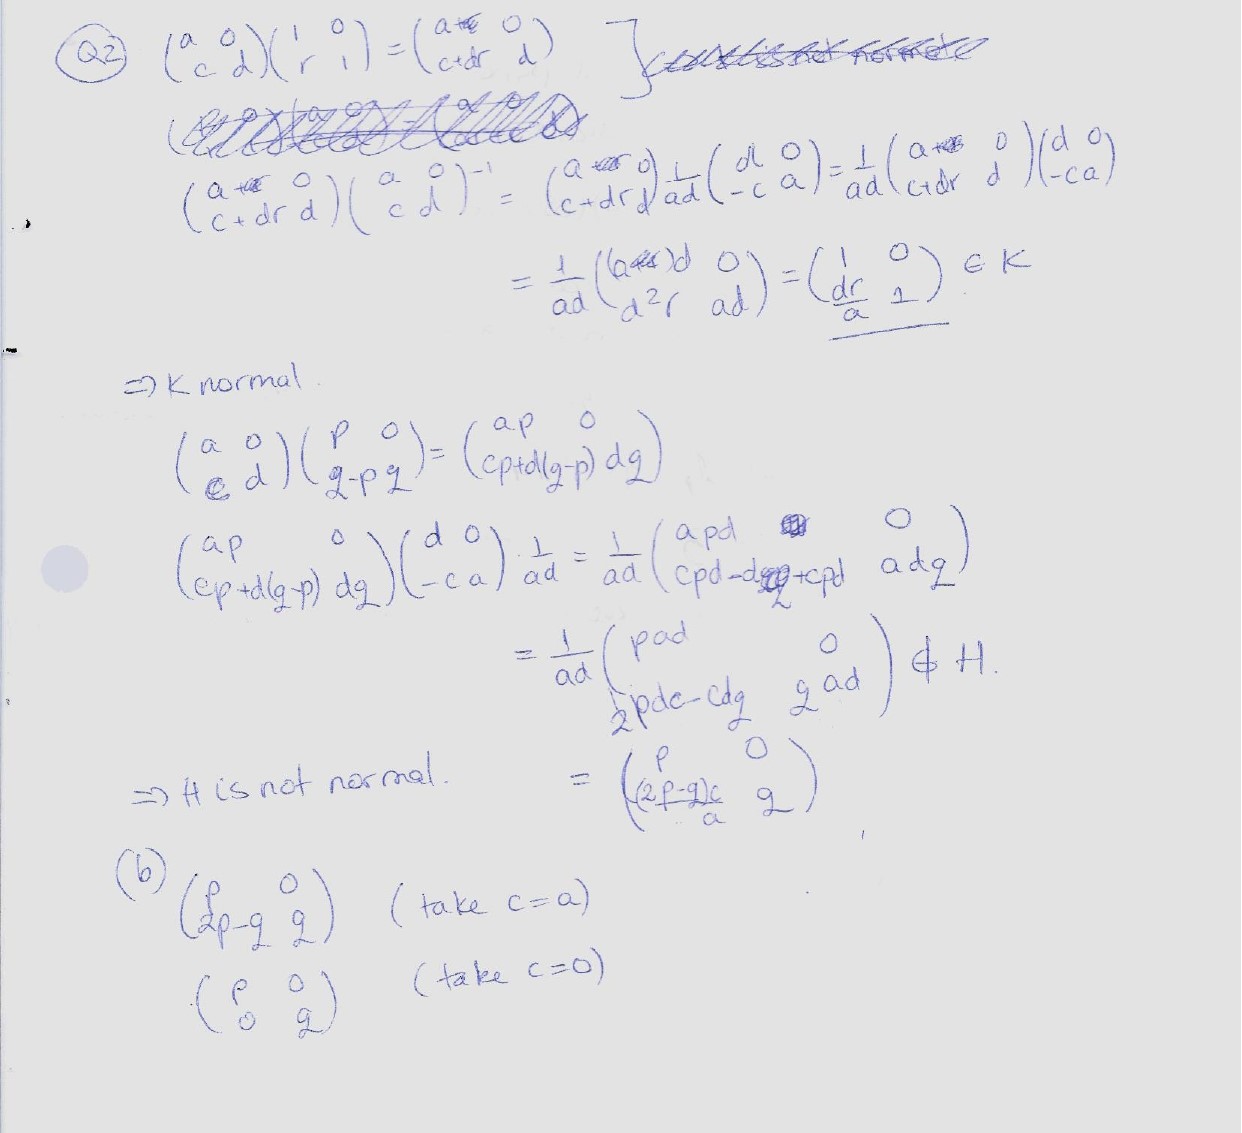 Q2 (a 0 / c d)(1 0 / r 1) = (a 0 / c+dr d)
(a 0 / c+dr d)(a 0 / c d)⁻¹ = (a 0 / c+dr d) 1/ad (d 0 / -c a) = 1/ad (a 0 / c+dr d)(d 0 / -c a)
= 1/ad ((a)d 0 / d²r ad) = (1 0 / dr/a 1) ∈ K
⇒ K normal.
(a 0 / c d)(p 0 / q-p q) = (ap 0 / cp+d(q-p) dq)
(ap 0 / cp+d(q-p) dq)(d 0 / -c a) · 1/ad = 1/ad (apd 0 / cpd-dcq+cpd adq)
= 1/ad (pad 0 / 2pdc-cdq qad) ∉ H.
⇒ H is not normal. = (p 0 / (2p-q)c/a q)
(b) (p 0 / 2p-q q) (take c=a)
(p 0 / 0 q) (take c=0)